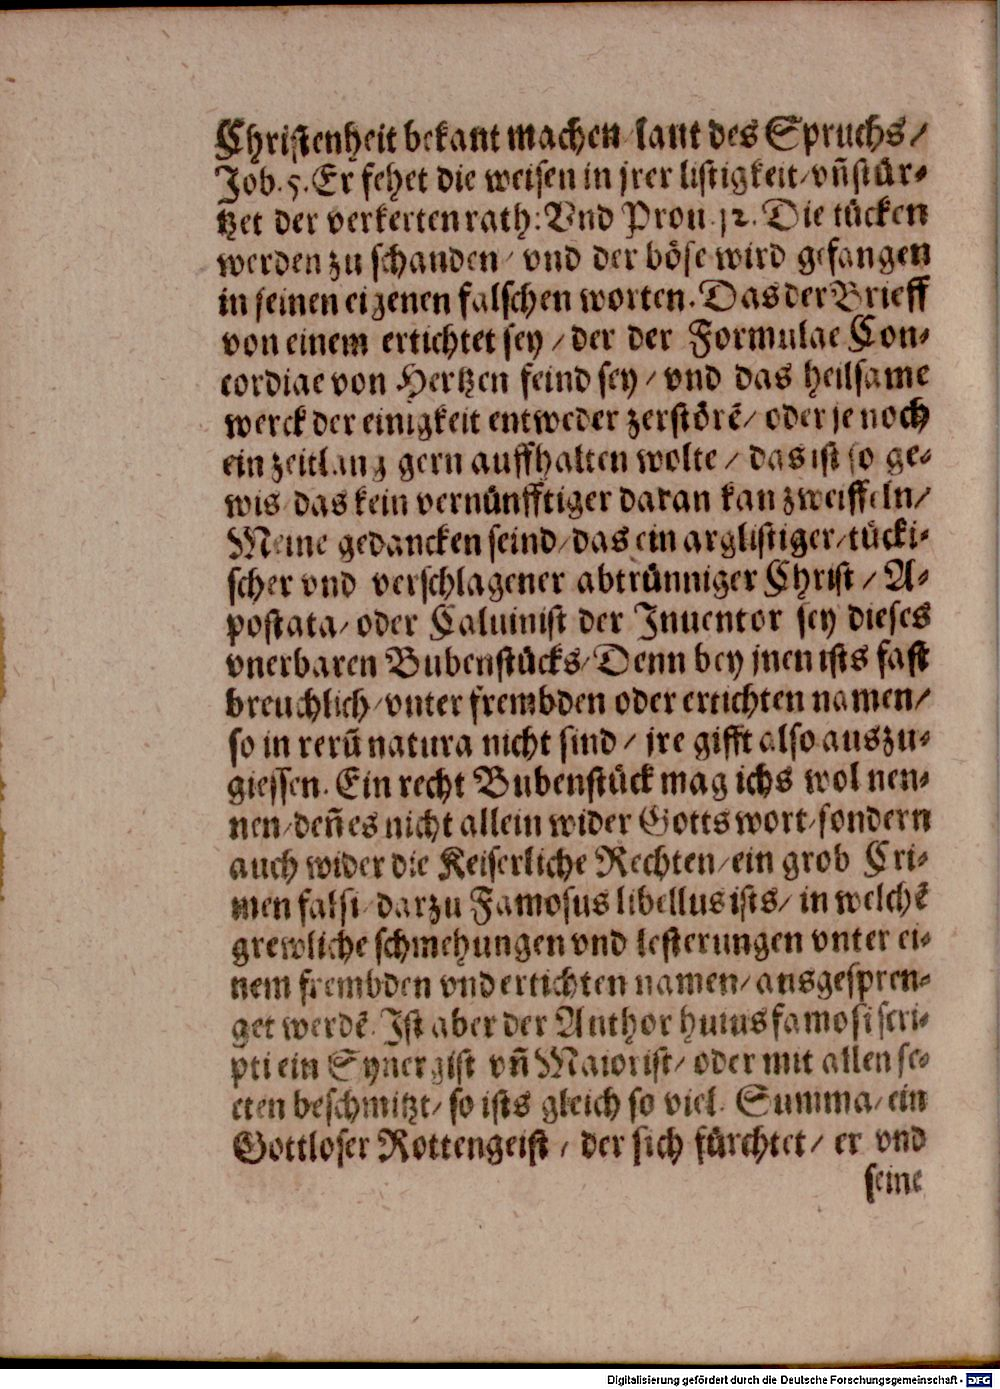 Christenheit bekant machen / laut des Spruchs /
Job. 5. Er fehet die weisen in jrer listigkeit / vñ stür-
tzet der verkerten rath: Vnd Prou. 12. Die tücken
werden zu schanden / vnd der böse wird gefangen
in seinen eigenen falschen worten. Das der Brieff
von einem ertichtet sey / der der Formulae Con-
cordiae von Hertzen feind sey / vnd das heilsame
werck der einigkeit entweder zerstörẽ / oder je noch
ein zeitlang gern auffhalten wolte / das ist so ge-
wis das kein vernünfftiger daran kan zweiffeln /
Meine gedancken seind / das ein arglistiger / tücki-
scher vnd verschlagener abtrünniger Christ / A-
postata / oder Caluinist der Inuentor sey dieses
vnerbaren Bubenstücks / Denn bey jnen ists fast
breuchlich / vnter frembden oder ertichten namen /
so in rerũ natura nicht sind / jre gifft also auszu-
giessen. Ein recht Bubenstück mag ichs wol nen-
nen / deñ es nicht allein wider Gotts wort / sondern
auch wider die Keiserliche Rechten / ein grob Cri-
men falsi / darzu Famosus libellus ists / in welchẽ
grewliche schmehungen vnd lesterungen vnter ei-
nem frembden vnd ertichten namen / ausgespren-
get werdẽ. Ist aber der Author huius famosi scri-
pti ein Synergist vñ Maiorist / oder mit allen se-
cten beschmitzt / so ists gleich so viel. Summa / ein
Gottloser Rottengeist / der sich fürchtet / er vnd
seine
Digitalisierung gefördert durch die Deutsche Forschungsgemeinschaft - DFG